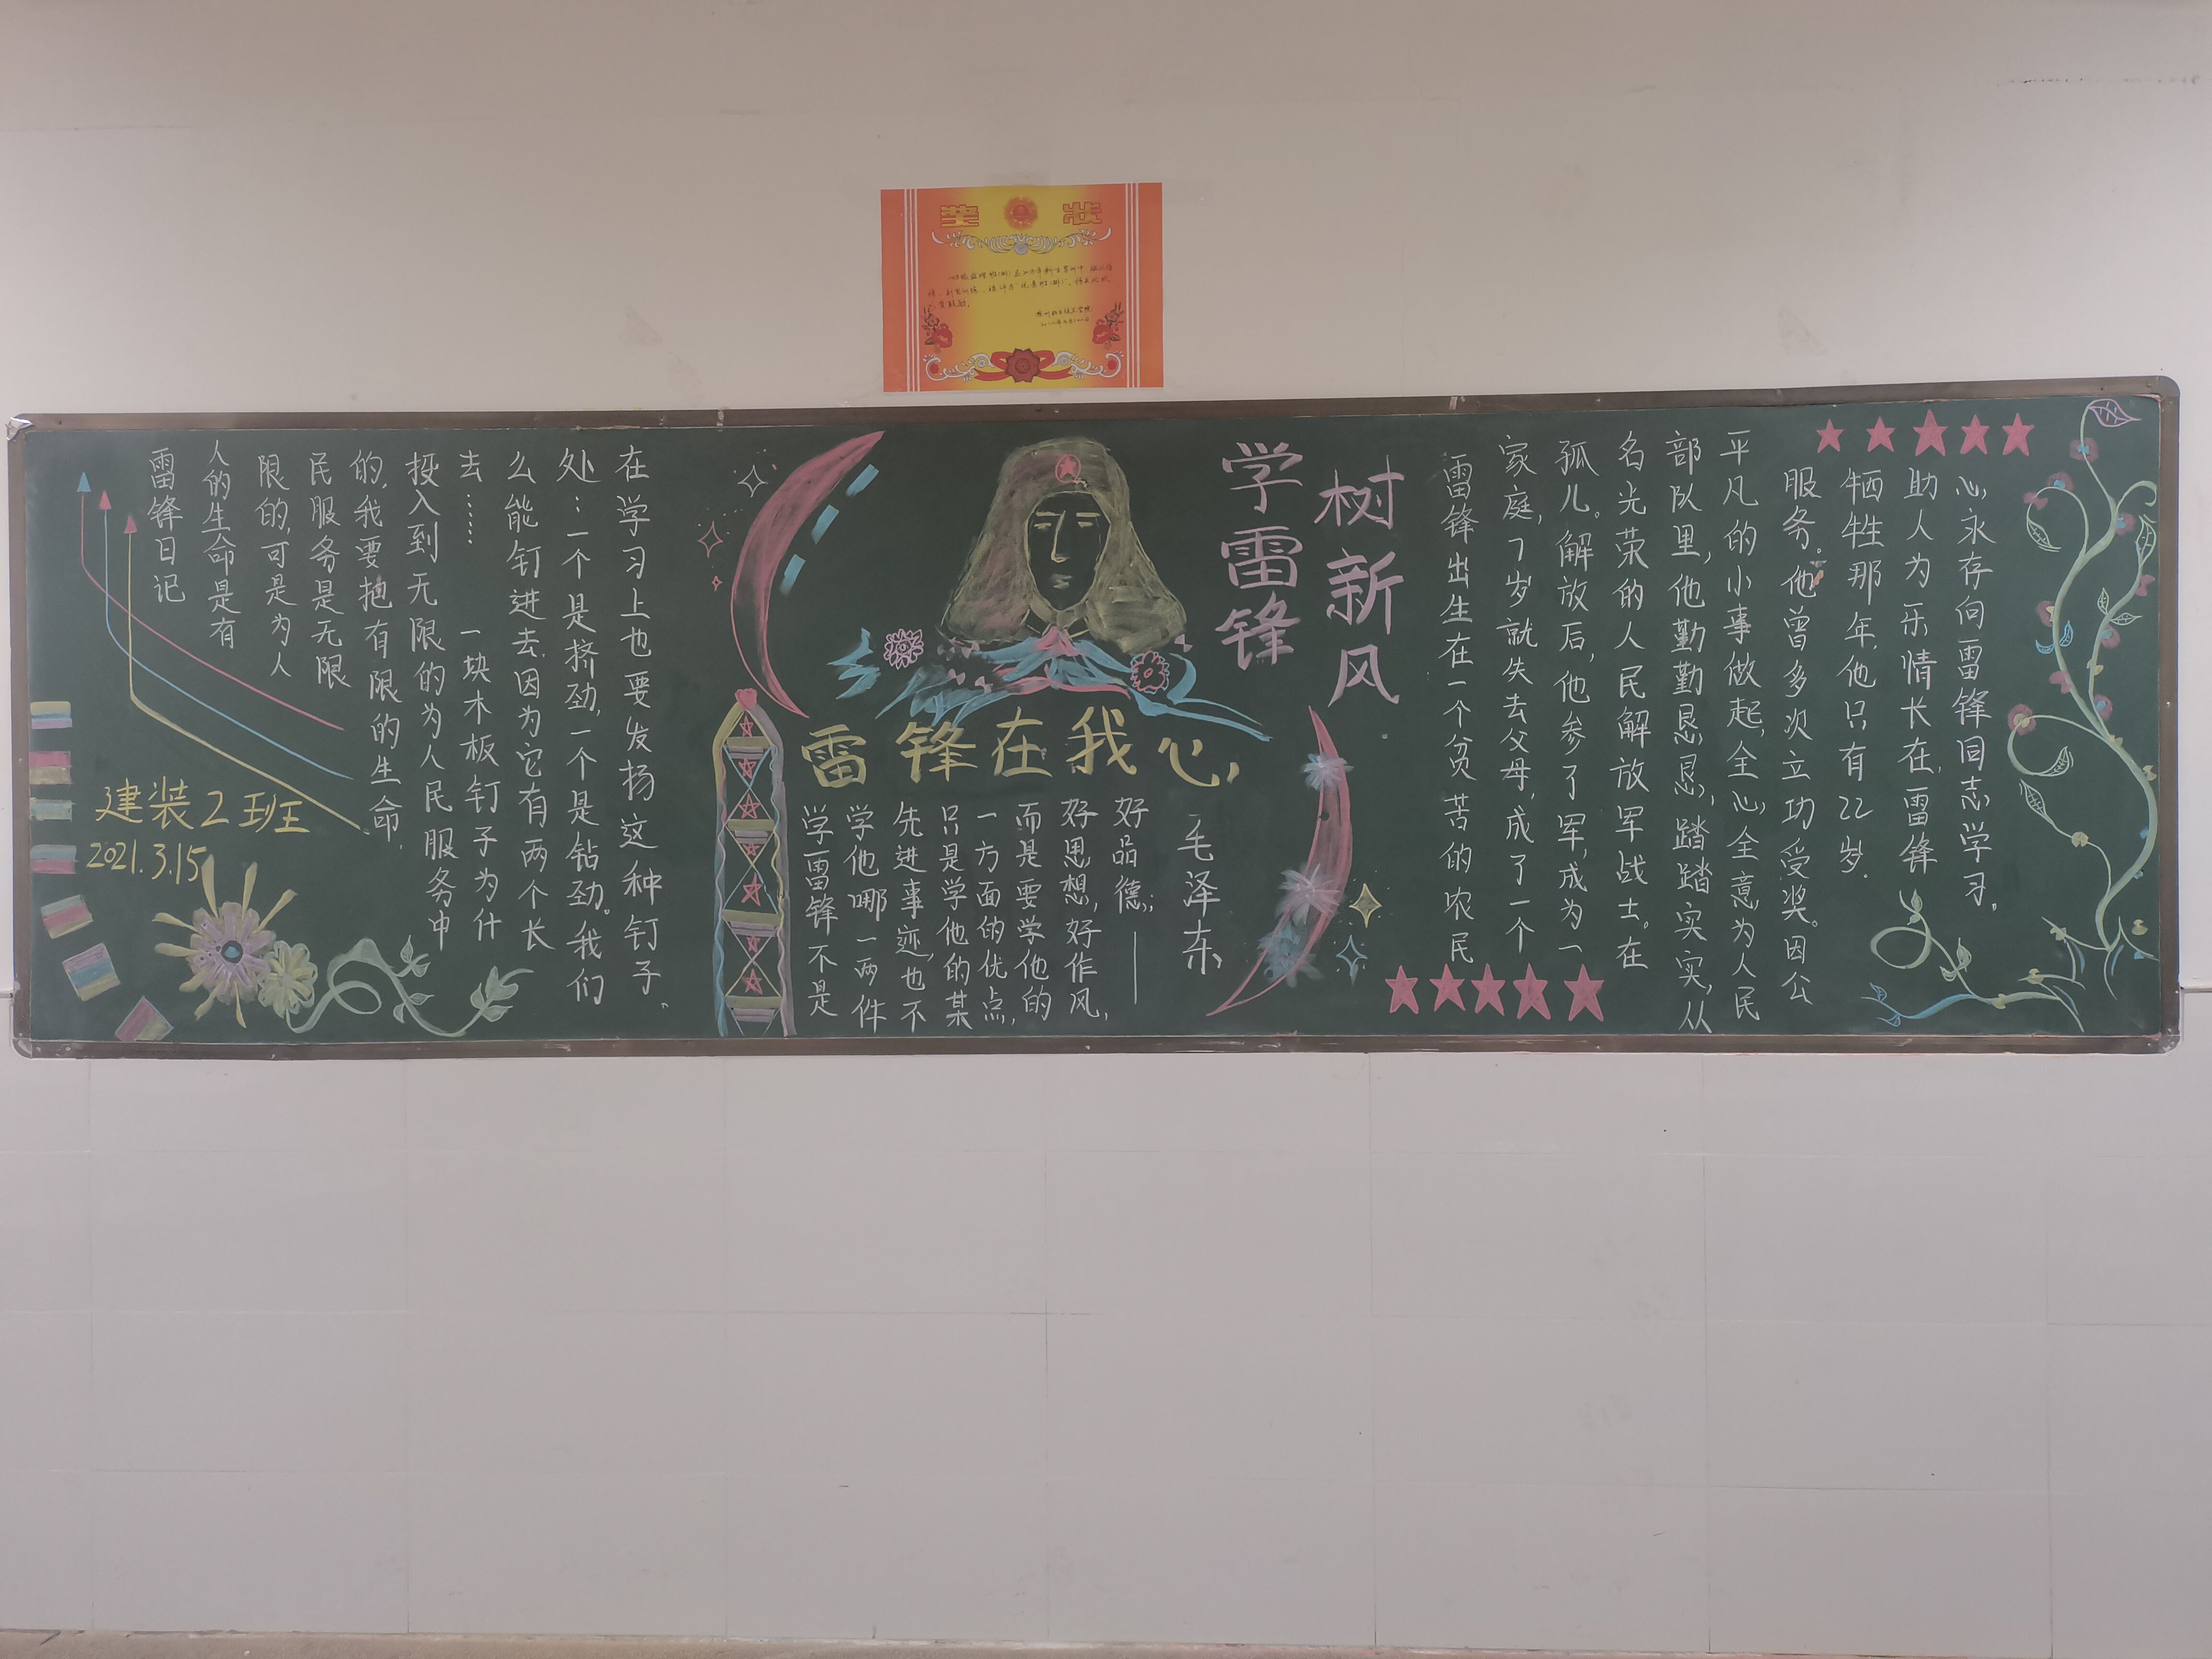 奖 状
雷锋日记
人的生命是有
限的,可是为人
民服务是无限
的,我要把有限的生命,
投入到无限的为人民服务中
去…… 一块木板钉子为什
么能钉进去,因为它有两个长
处:一个是挤劲,一个是钻劲。我们
在学习上也要发扬这种钉子。
建装2班
2021.3.15
学雷锋
树新风
雷锋在我心
学雷锋不是
学他哪一两件
先进事迹,也不
只是学他的某
一方面的优点,
而是要学他的
好思想,好作风,
好品德;——
毛泽东
雷锋出生在一个贫苦的农民
家庭,7岁就失去父母,成了一个
孤儿。解放后,他参了军,成为一
名光荣的人民解放军战士。在
部队里,他勤勤恳恳,踏踏实实,从
平凡的小事做起,全心全意为人民
服务。他曾多次立功受奖。因公
牺牲那年,他只有22岁.
助人为乐情长在,雷锋
心永存向雷锋同志学习.